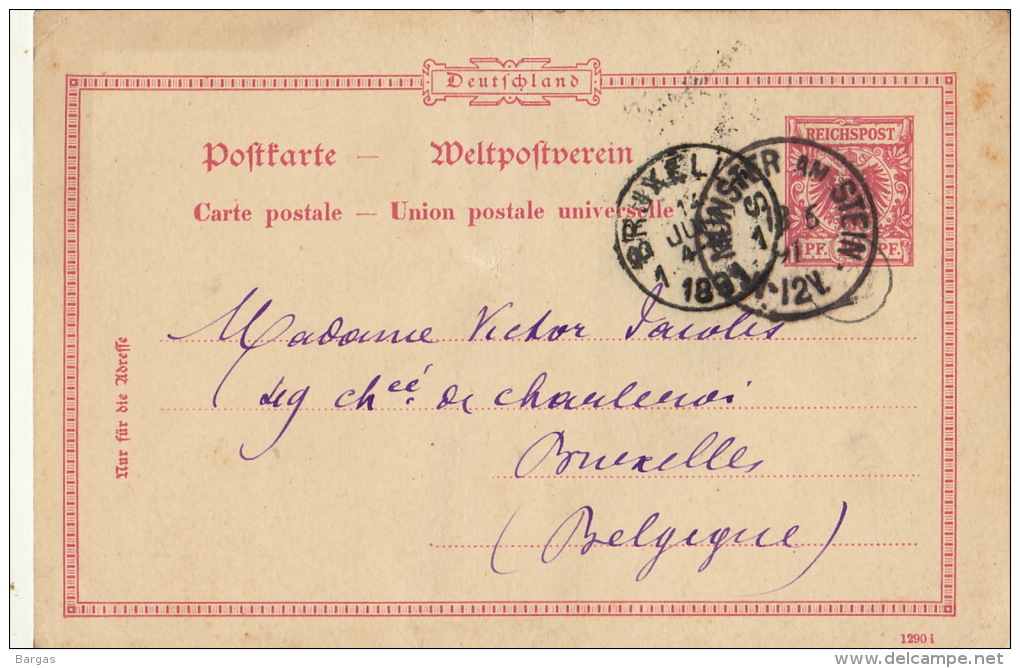 Deutschland
Postkarte — Weltpostverein
Carte postale — Union postale universelle
REICHSPOST
PF. PF.
BRUXELLES
1 1891
MÜNSTER AM STEIN
6
91
-12V.
Nur für die Adresse
Madame Victor Jacobs
49 chée. de charleroi
Bruxelles
(Belgique)
1290 i
Bargas
delcampe.net